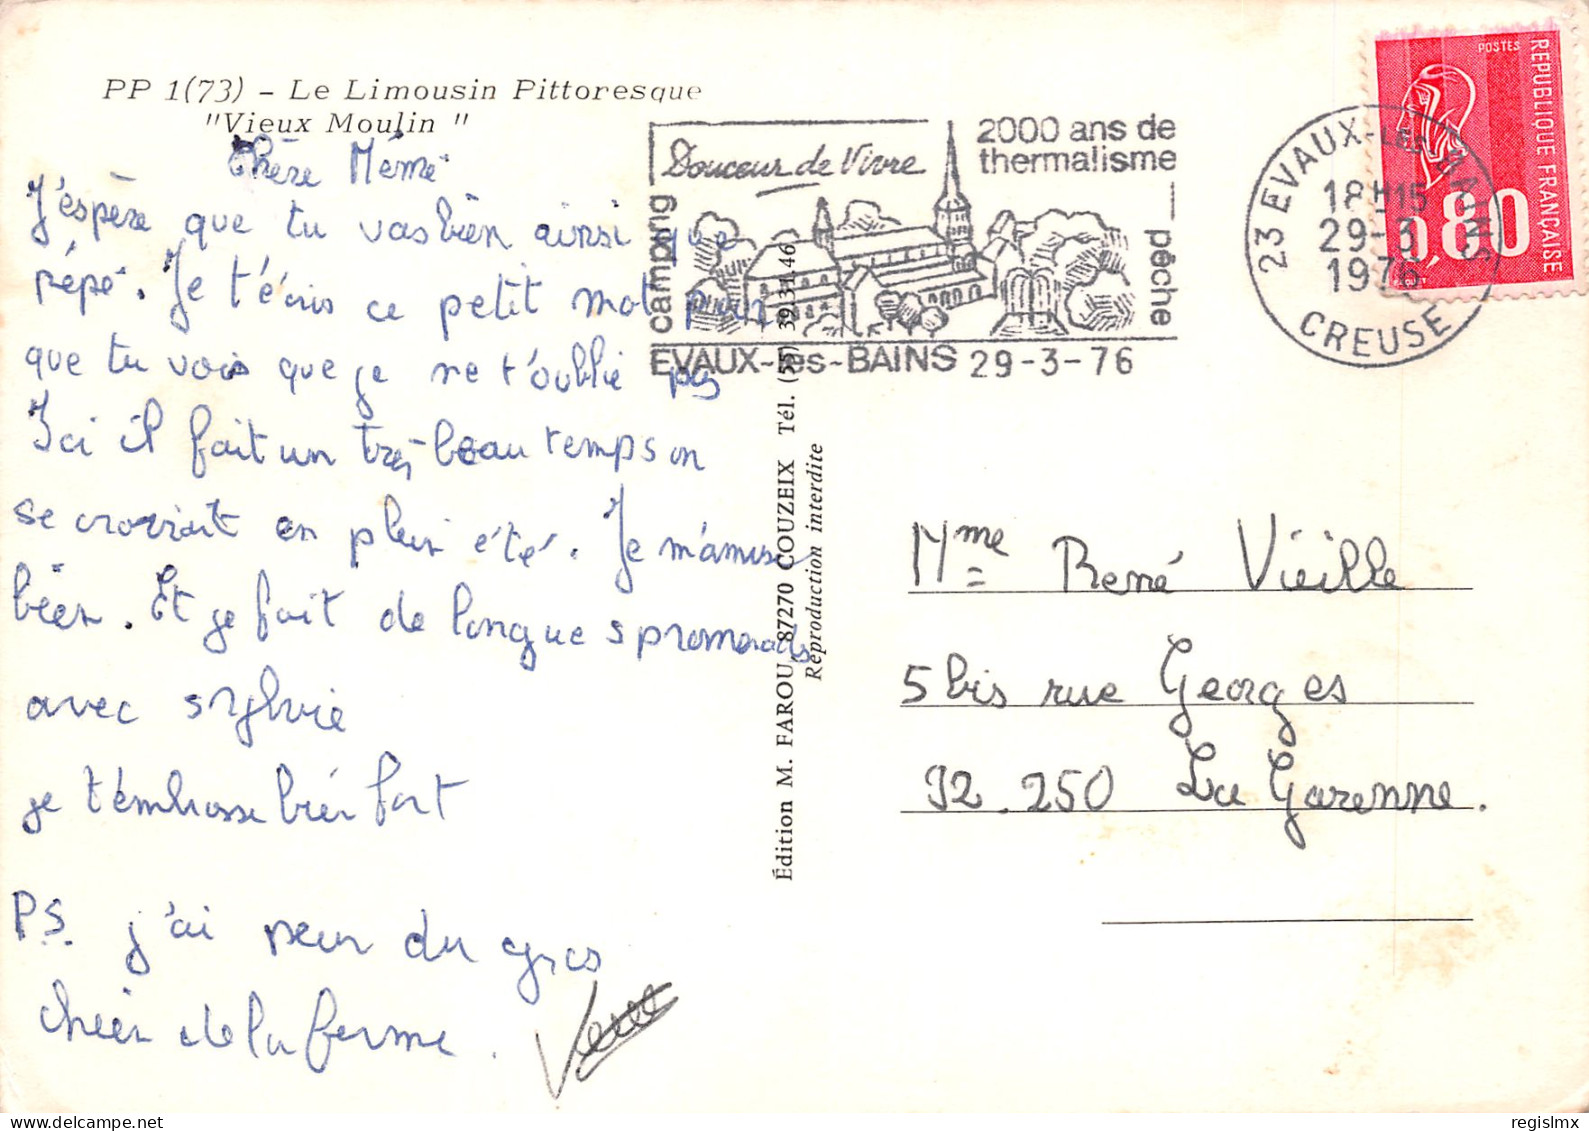 PP 1(73) - Le Limousin Pittoresque
"Vieux Moulin "
Chère Mémé
J'éspère que tu vas bien ainsi que
pépé. Je t'écris ce petit mot pour
que tu vois que je ne t'oublie pas
Ici il fait un très beau temps on
se croirait en plein été. Je m'amuse
bien. Et je fait de longue s promenades
avec sylvie
je t'embrasse bien fort
P.S. j'ai peur du gros
chien de la ferme.
Édition M. FAROU 87270 COUZEIX Tél. (55) 39.31.46
Reproduction interdite
Douceur de Vivre
2000 ans de
thermalisme
camping
pêche
EVAUX-les-BAINS 29-3-76
23 EVAUX-LES-BAINS
18H15
29-3
1976
CREUSE
POSTES
REPUBLIQUE FRANÇAISE
0,80
Mme René Vieille
5 bis rue Georges
92.250 La Garenne.
regislmx